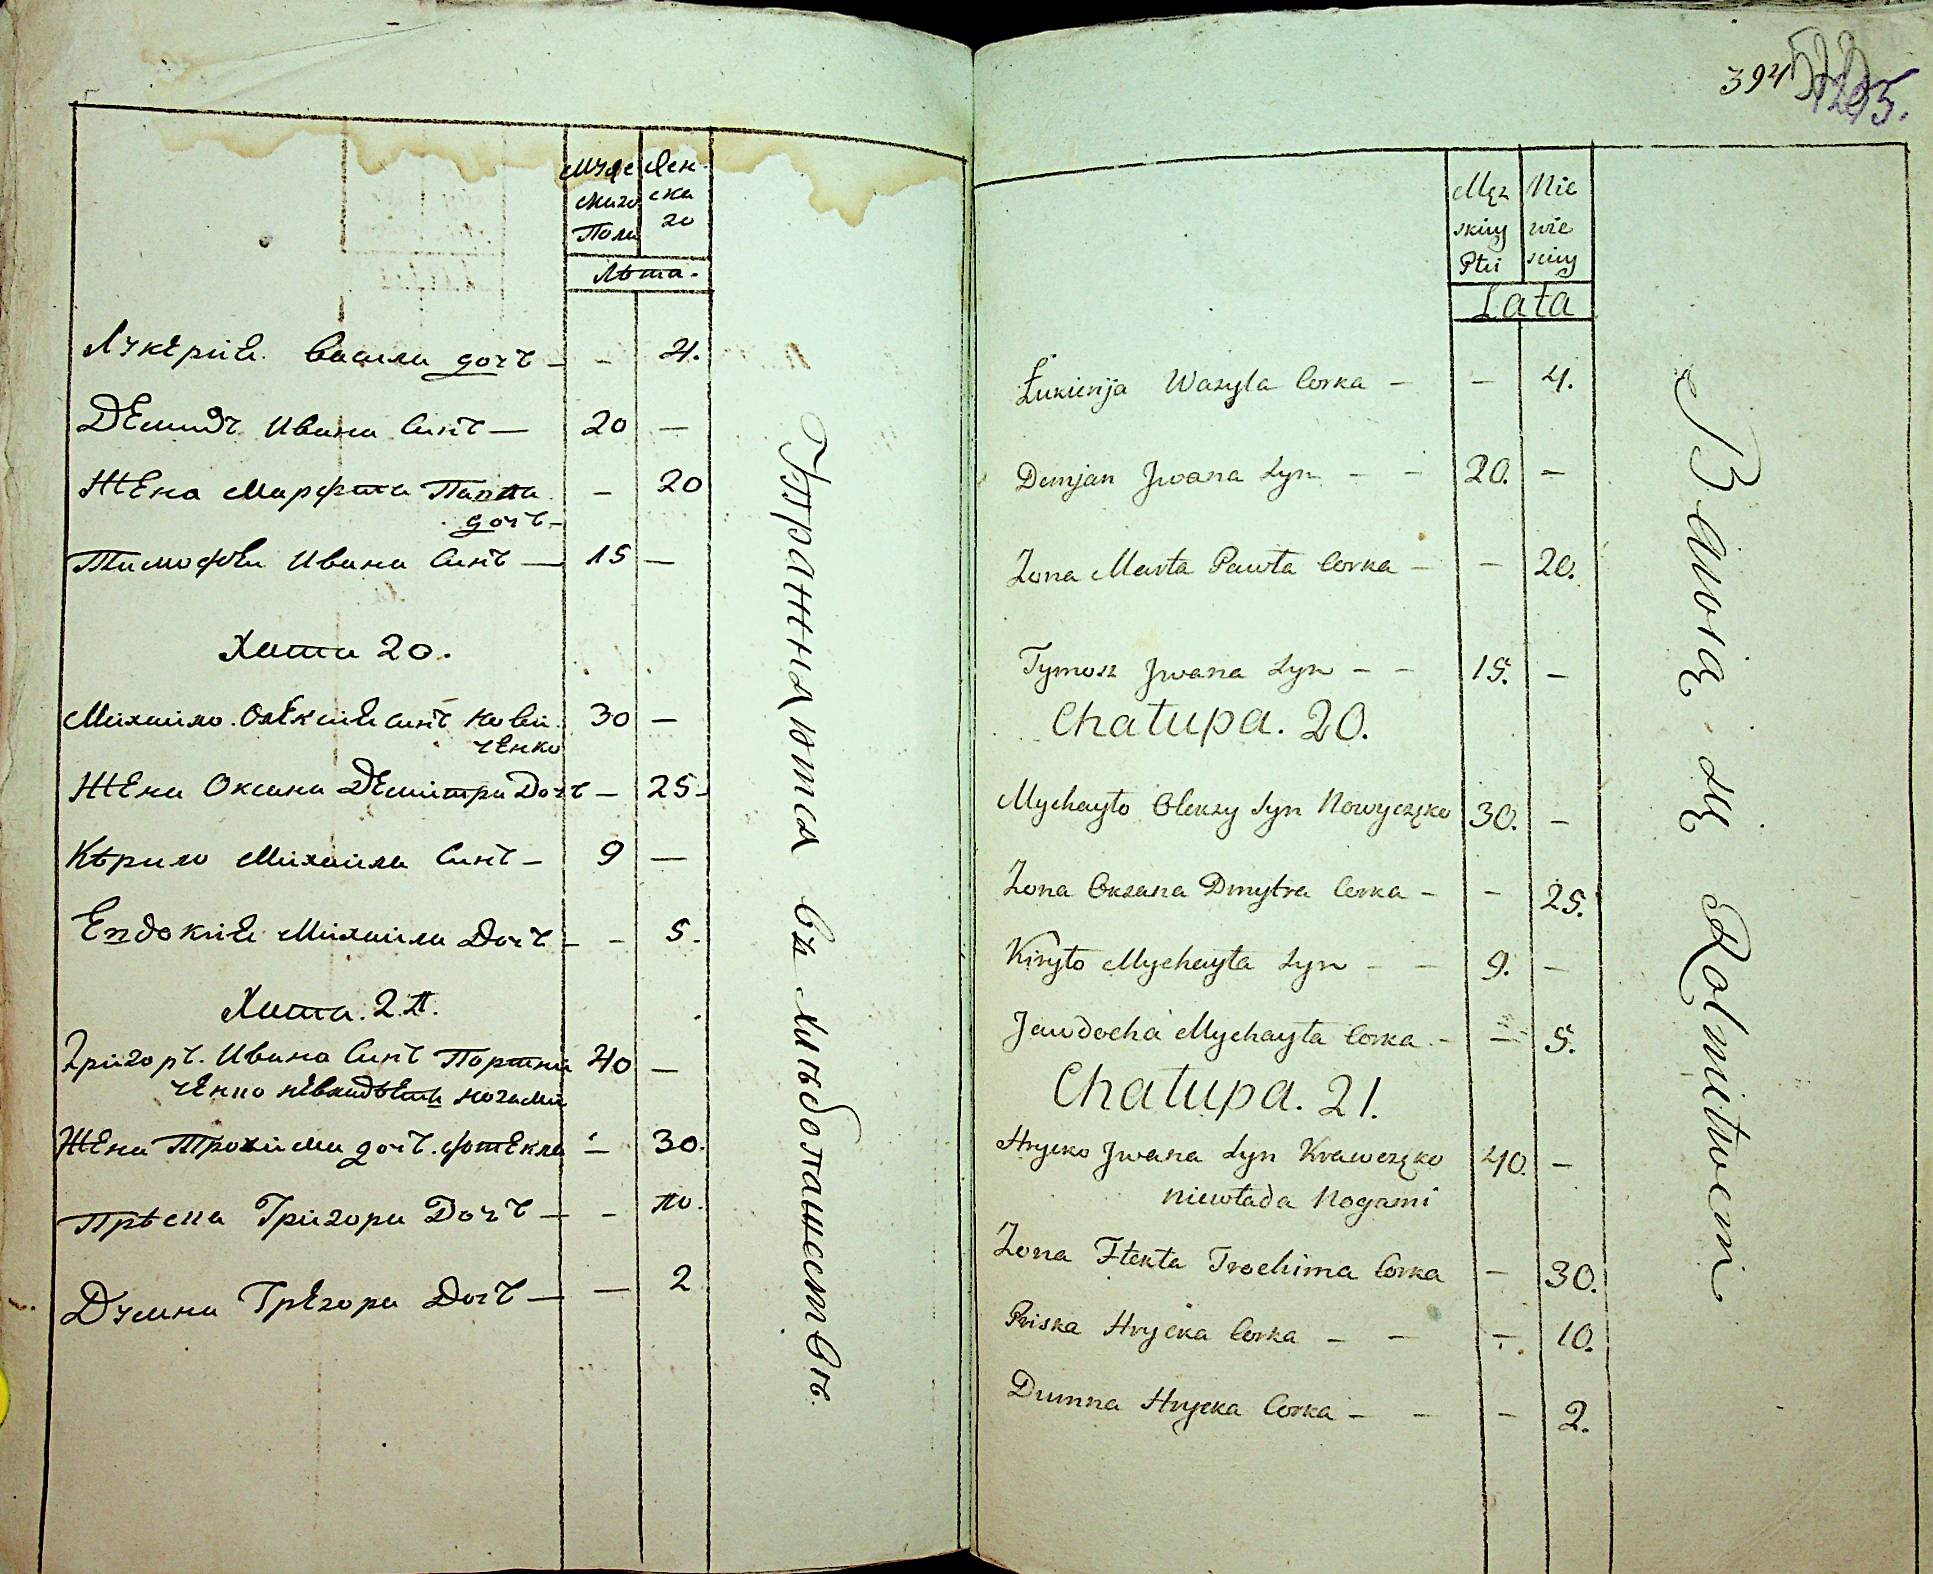 Муже Жен
скаго ска
Пола го
Лѣта.
Лукерия Васили дочъ — — 4.
Демидъ Ивана Синъ — 20 —
Жена Марфта Павла — 20
дочъ —
Тимофѣи Ивана Синъ — 15 —
Хата 20.
Михайло Олексия синъ Нови 30 —
ченко
Жена Оксана Демитра Дочъ — 25 —
Кѣрило Михайла Синъ — 9 —
Евдокия Михайла Дочъ — — 5.
Хата. 21.
Григоръ. Ивана Синъ Портни 40 —
ченко невладѣетъ ногами
Жена Трохима дочъ. Фтекла — 30.
Прѣска Григора Дочъ — — 10.
Думна Грегора Дочъ — — 2
Упражняются въ хлѣбопашествѣ.
394
1205.
Męz Nie
skiey wie
Płci sciey
Lata
Łukierija Wasyla Corka — — 4.
Demjan Jwana Syn — — 20. —
Zona Marta Pawła Corka — — 20.
Tymosz Jwana Syn — — 15. —
Chałupa. 20.
Mychayło Olexzy Syn Nowyczęko 30. —
Zona Oksana Dmytra Corka — — 25.
Kiryło Mychayła Syn — — 9. —
Jawdocha Mychayła Corka. — — 5.
Chałupa. 21.
Hrycko Jwana Syn Krawczęko 40. —
niewłada Nogami
Zona Ftekta Trochima Corka — 30.
Priska Hrycka Corka — — — 10.
Dumna Hrycka Corka — — — 2.
Bawią się Rolnitwem